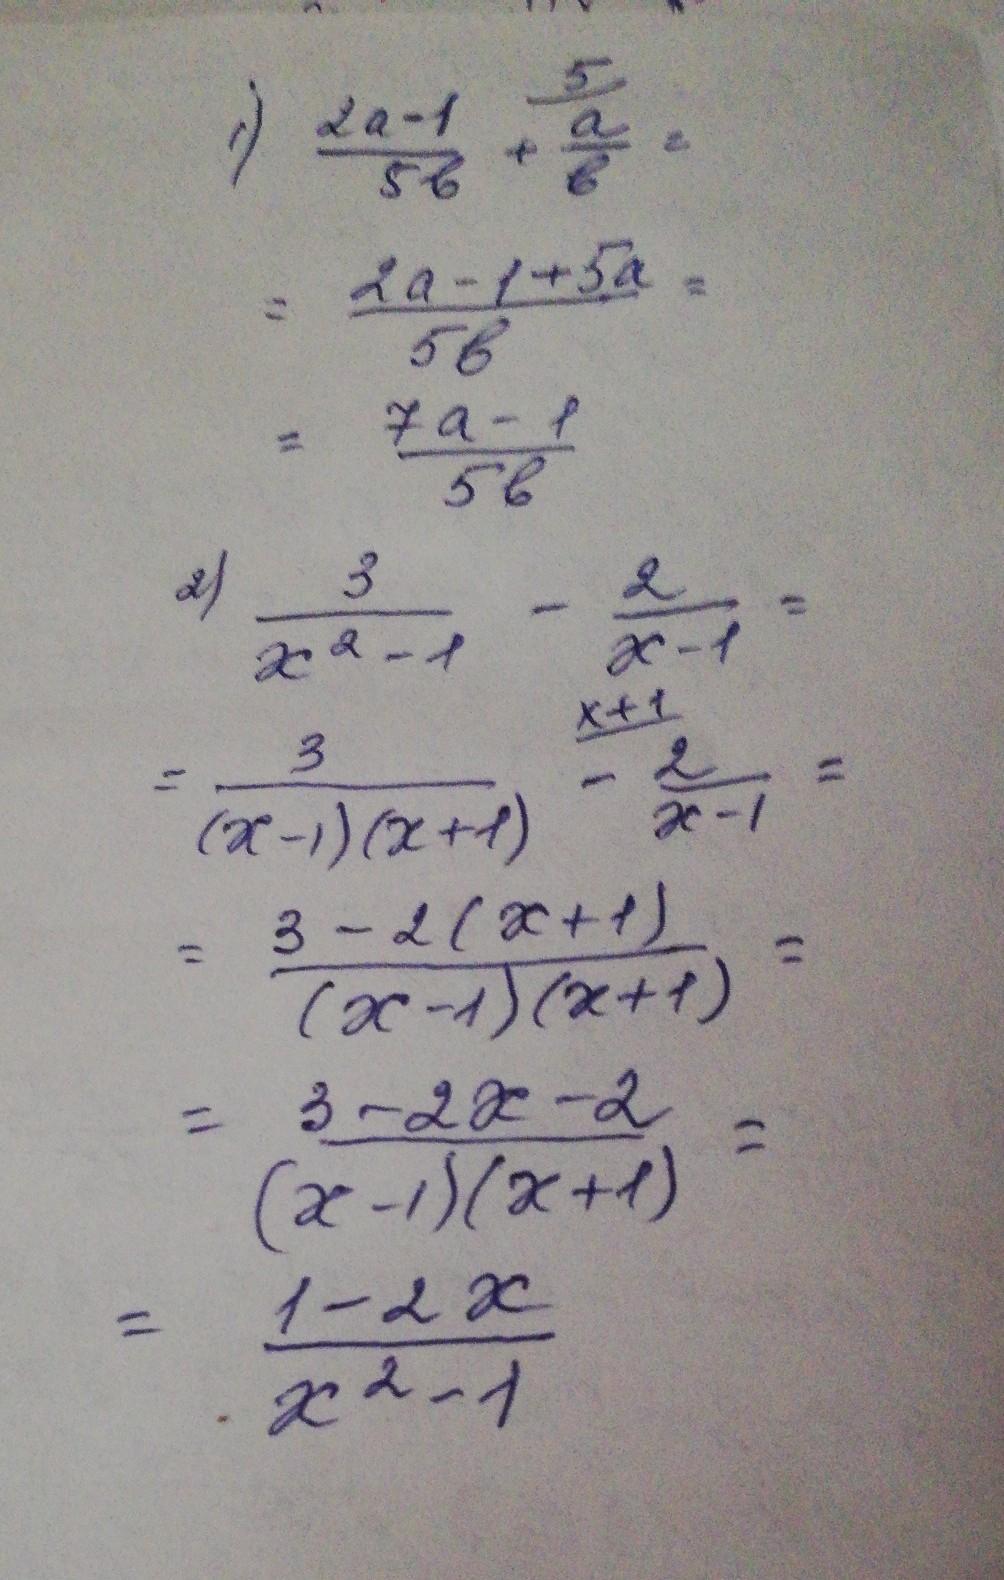 1) (2a-1)/(5b) + 5/ a/b =
= (2a-1+5a)/(5b) =
= (7a-1)/(5b)
2) 3/(x²-1) - 2/(x-1) =
= 3/((x-1)(x+1)) - x+1/ 2/(x-1) =
= (3-2(x+1))/((x-1)(x+1)) =
= (3-2x-2)/((x-1)(x+1)) =
= (1-2x)/(x²-1)